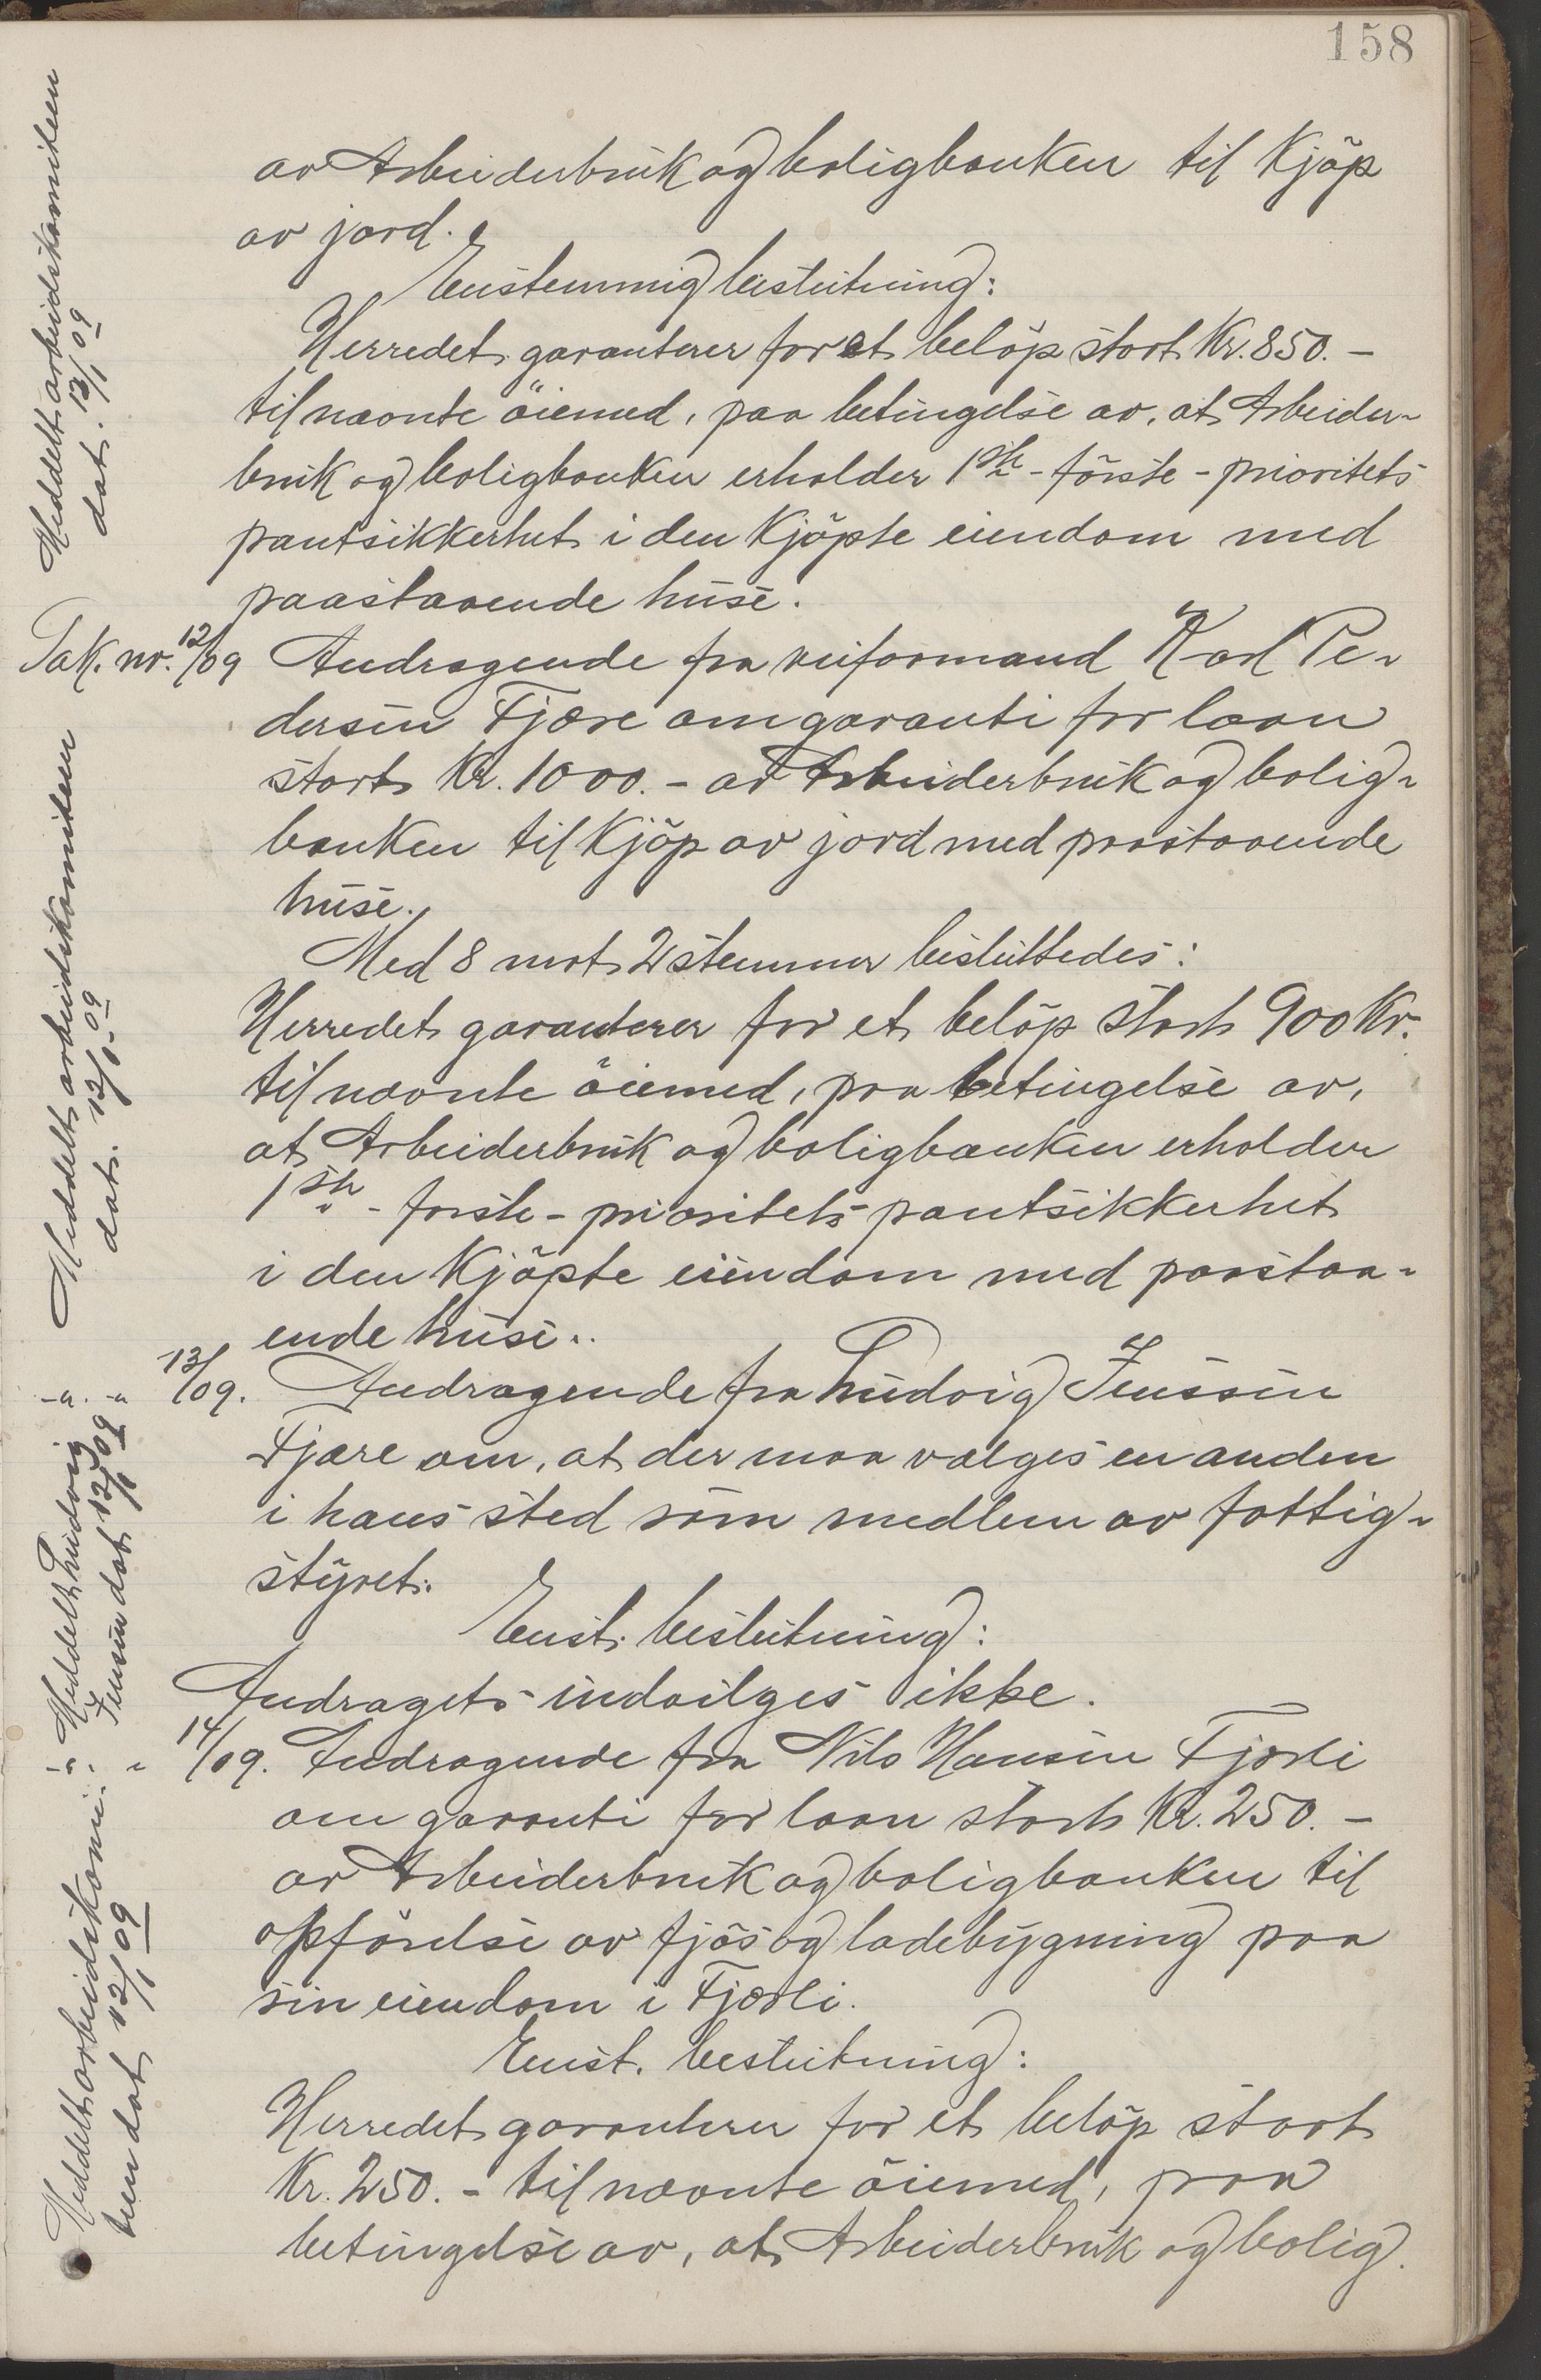 158
av Arbeiderbruk og boligbanken til Kjöp
av jord.
Enstemmig beslutning:
Herredet garanterer for et belöp stort Kr. 850.-
til nævnte öiemed, paa betingelse av, at Arbeider-
bruk og boligbanken erholder 1ste - förste - prioritets
pantsikkerhet i den Kjöpte eiendom med
paastaaende huse.
Meddelt arbeidskomiteen
dat. 13/1 09
Sak. nr. 12/09 Andragende fra veiformand Karl Pe-
dersen Fjære om garanti for laan
stort Kr. 1000.- av Arbeiderbruk og bolig-
banken til Kjöp av jord med paastaaende
huse.
Med 8 mot 2 stemmer besluttedes:
Herredet garanterer for et belöp stort 900 Kr.
til nævnte öiemed, paa betingelse av,
at Arbeiderbruk og boligbanken erholder
1ste - förste - prioritets pantsikkerhet
i den Kjöpte eiendom med paastaa-
ende huse..
Meddelt arbeidskomiteen
dat. 12/1 - 09
-"- " 13/09. Andragende fra Ludvig Jenssen
Fjære om, at der maa vælges en anden
i hans sted som medlem av fattig-
styret.
Enst. beslutning:
Andraget indvilges ikke.
Meddelt Ludvig
Jensen dat 12/1 09
-"- " 14/09. Andragende fra Nils Hansen Fjærli
om garanti for laan stort Kr. 250.-
av Arbeiderbruk og boligbanken til
opförelse av fjös og ladebygning paa
sin eiendom i Fjærli.
Enst. beslutning:
Herredet garanterer for et belöp stort
Kr. 250.- til nævnte öiemed, paa
betingelse av, at Arbeiderbruk og bolig.
Meddelt arbeidskomi-
teen dat 12/1 09